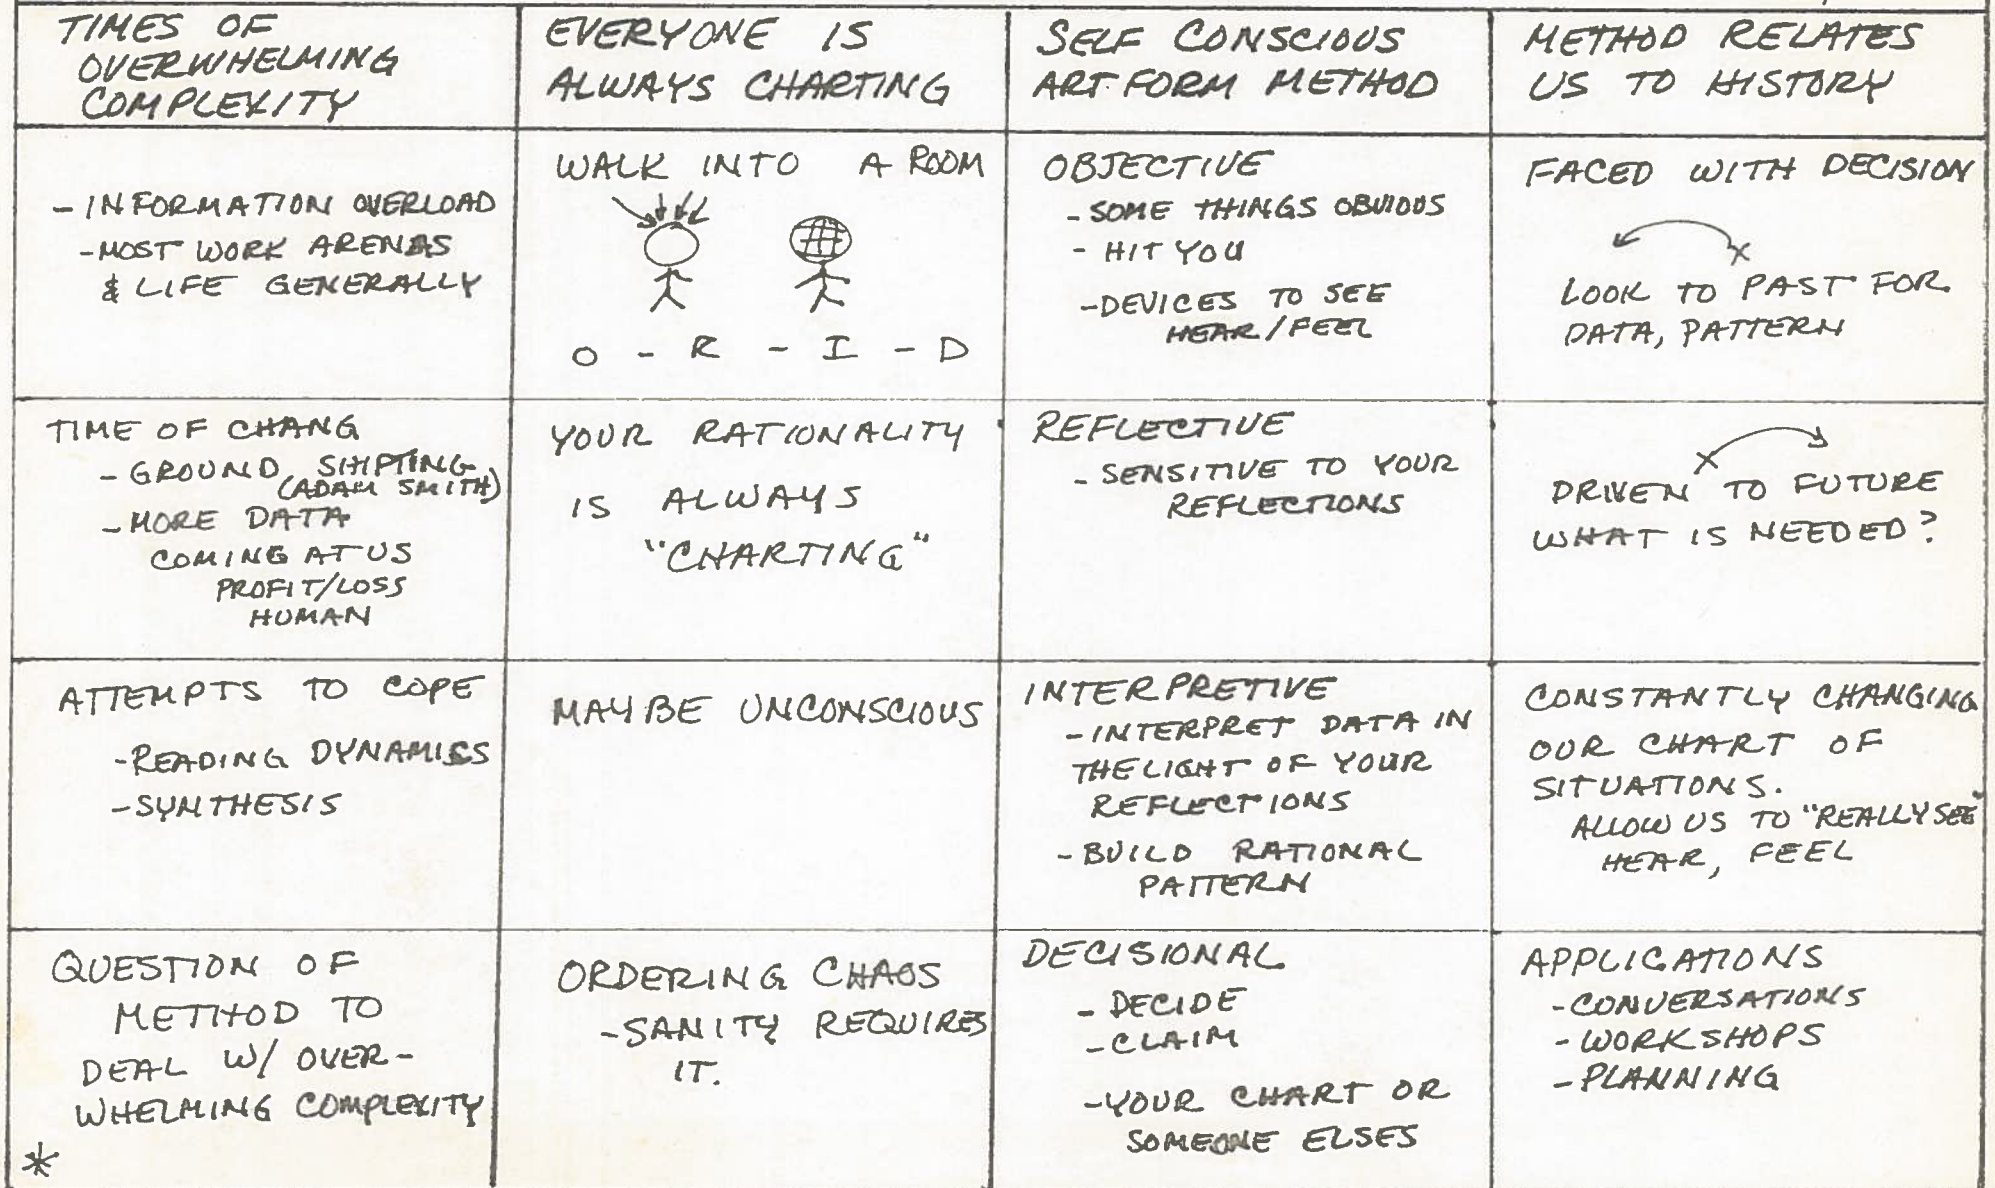 TIMES OF
OVERWHELMING
COMPLEXITY
EVERYONE IS
ALWAYS CHARTING
SELF CONSCIOUS
ART FORM METHOD
METHOD RELATES
US TO HISTORY
- INFORMATION OVERLOAD
- MOST WORK ARENAS
& LIFE GENERALLY
WALK INTO A ROOM
O - R - I - D
OBJECTIVE
- SOME THINGS OBVIOUS
- HIT YOU
- DEVICES TO SEE
HEAR/FEEL
FACED WITH DECISION
LOOK TO PAST FOR
DATA, PATTERN
TIME OF CHANG
- GROUND SHIPTING
(ADAM SMITH)
- MORE DATA
COMING AT US
PROFIT/LOSS
HUMAN
YOUR RATIONALITY
IS ALWAYS
"CHARTING"
REFLECTIVE
- SENSITIVE TO YOUR
REFLECTIONS
DRIVEN TO FUTURE
WHAT IS NEEDED?
ATTEMPTS TO COPE
- READING DYNAMICS
- SYNTHESIS
MAYBE UNCONSCIOUS
INTERPRETIVE
- INTERPRET DATA IN
THE LIGHT OF YOUR
REFLECTIONS
- BUILD RATIONAL
PATTERN
CONSTANTLY CHANGING
OUR CHART OF
SITUATIONS.
ALLOW US TO "REALLY SEE"
HEAR, FEEL
QUESTION OF
METHOD TO
DEAL W/ OVER-
WHELMING COMPLEXITY
*
ORDERING CHAOS
- SANITY REQUIRES
IT.
DECISIONAL
- DECIDE
- CLAIM
- YOUR CHART OR
SOMEONE ELSES
APPLICATIONS
- CONVERSATIONS
- WORKSHOPS
- PLANNING